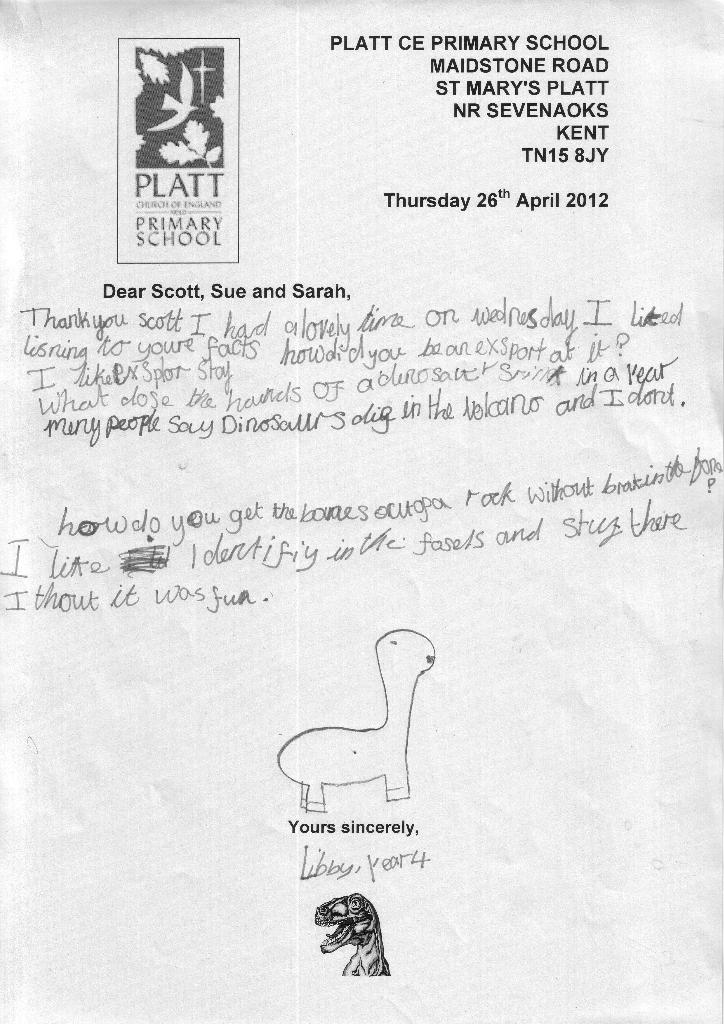 PLATT CE PRIMARY SCHOOL
MAIDSTONE ROAD
ST MARY'S PLATT
NR SEVENAOKS
KENT
TN15 8JY
Thursday 26th April 2012
PLATT
CHURCH OF ENGLAND
PRIMARY
SCHOOL
Dear Scott, Sue and Sarah,
Thankyou scott I had a lovely time on wednesday I liked
lisning to youre facts how did you be an exsport at it?
I like exsplor
What dose the of a in a year
meny people say Dinosaurs dig in the volcano and I dont.
how do you get the bones outofa rock without brakin the bons?
I like Identifiy in the fasels and stuf there
I thout it was fun.
Yours sincerely,
Libby, year 4